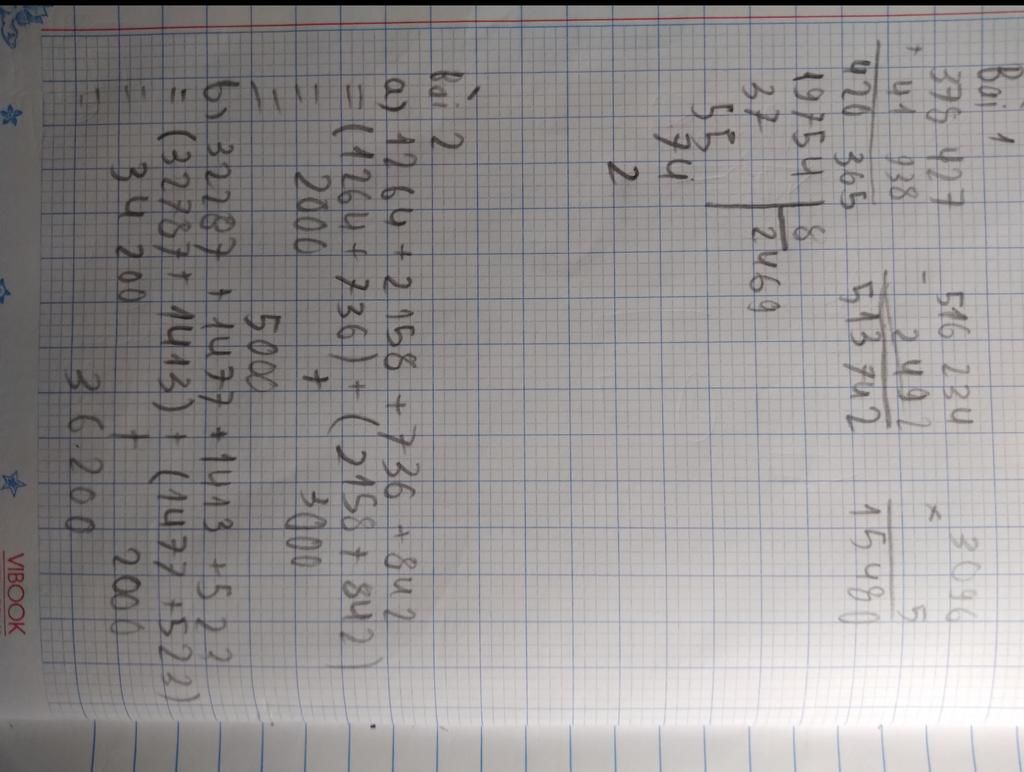 Bài 1
378 427 - 516 234 × 3096
+ 41 938 2 492 5
420 365 513 742 15 480
19754 8
37 2469
55
74
2
Bài 2
a) 1264 + 2158 + 736 + 842
= (1264 + 736) + (2158 + 842)
= 2000 + 3000
= 5000
b) 32287 + 1477 + 1413 + 522
= (32787 + 1413) + (1477 + 523)
= 34 200 + 2000
= 36.200
VIBOOK